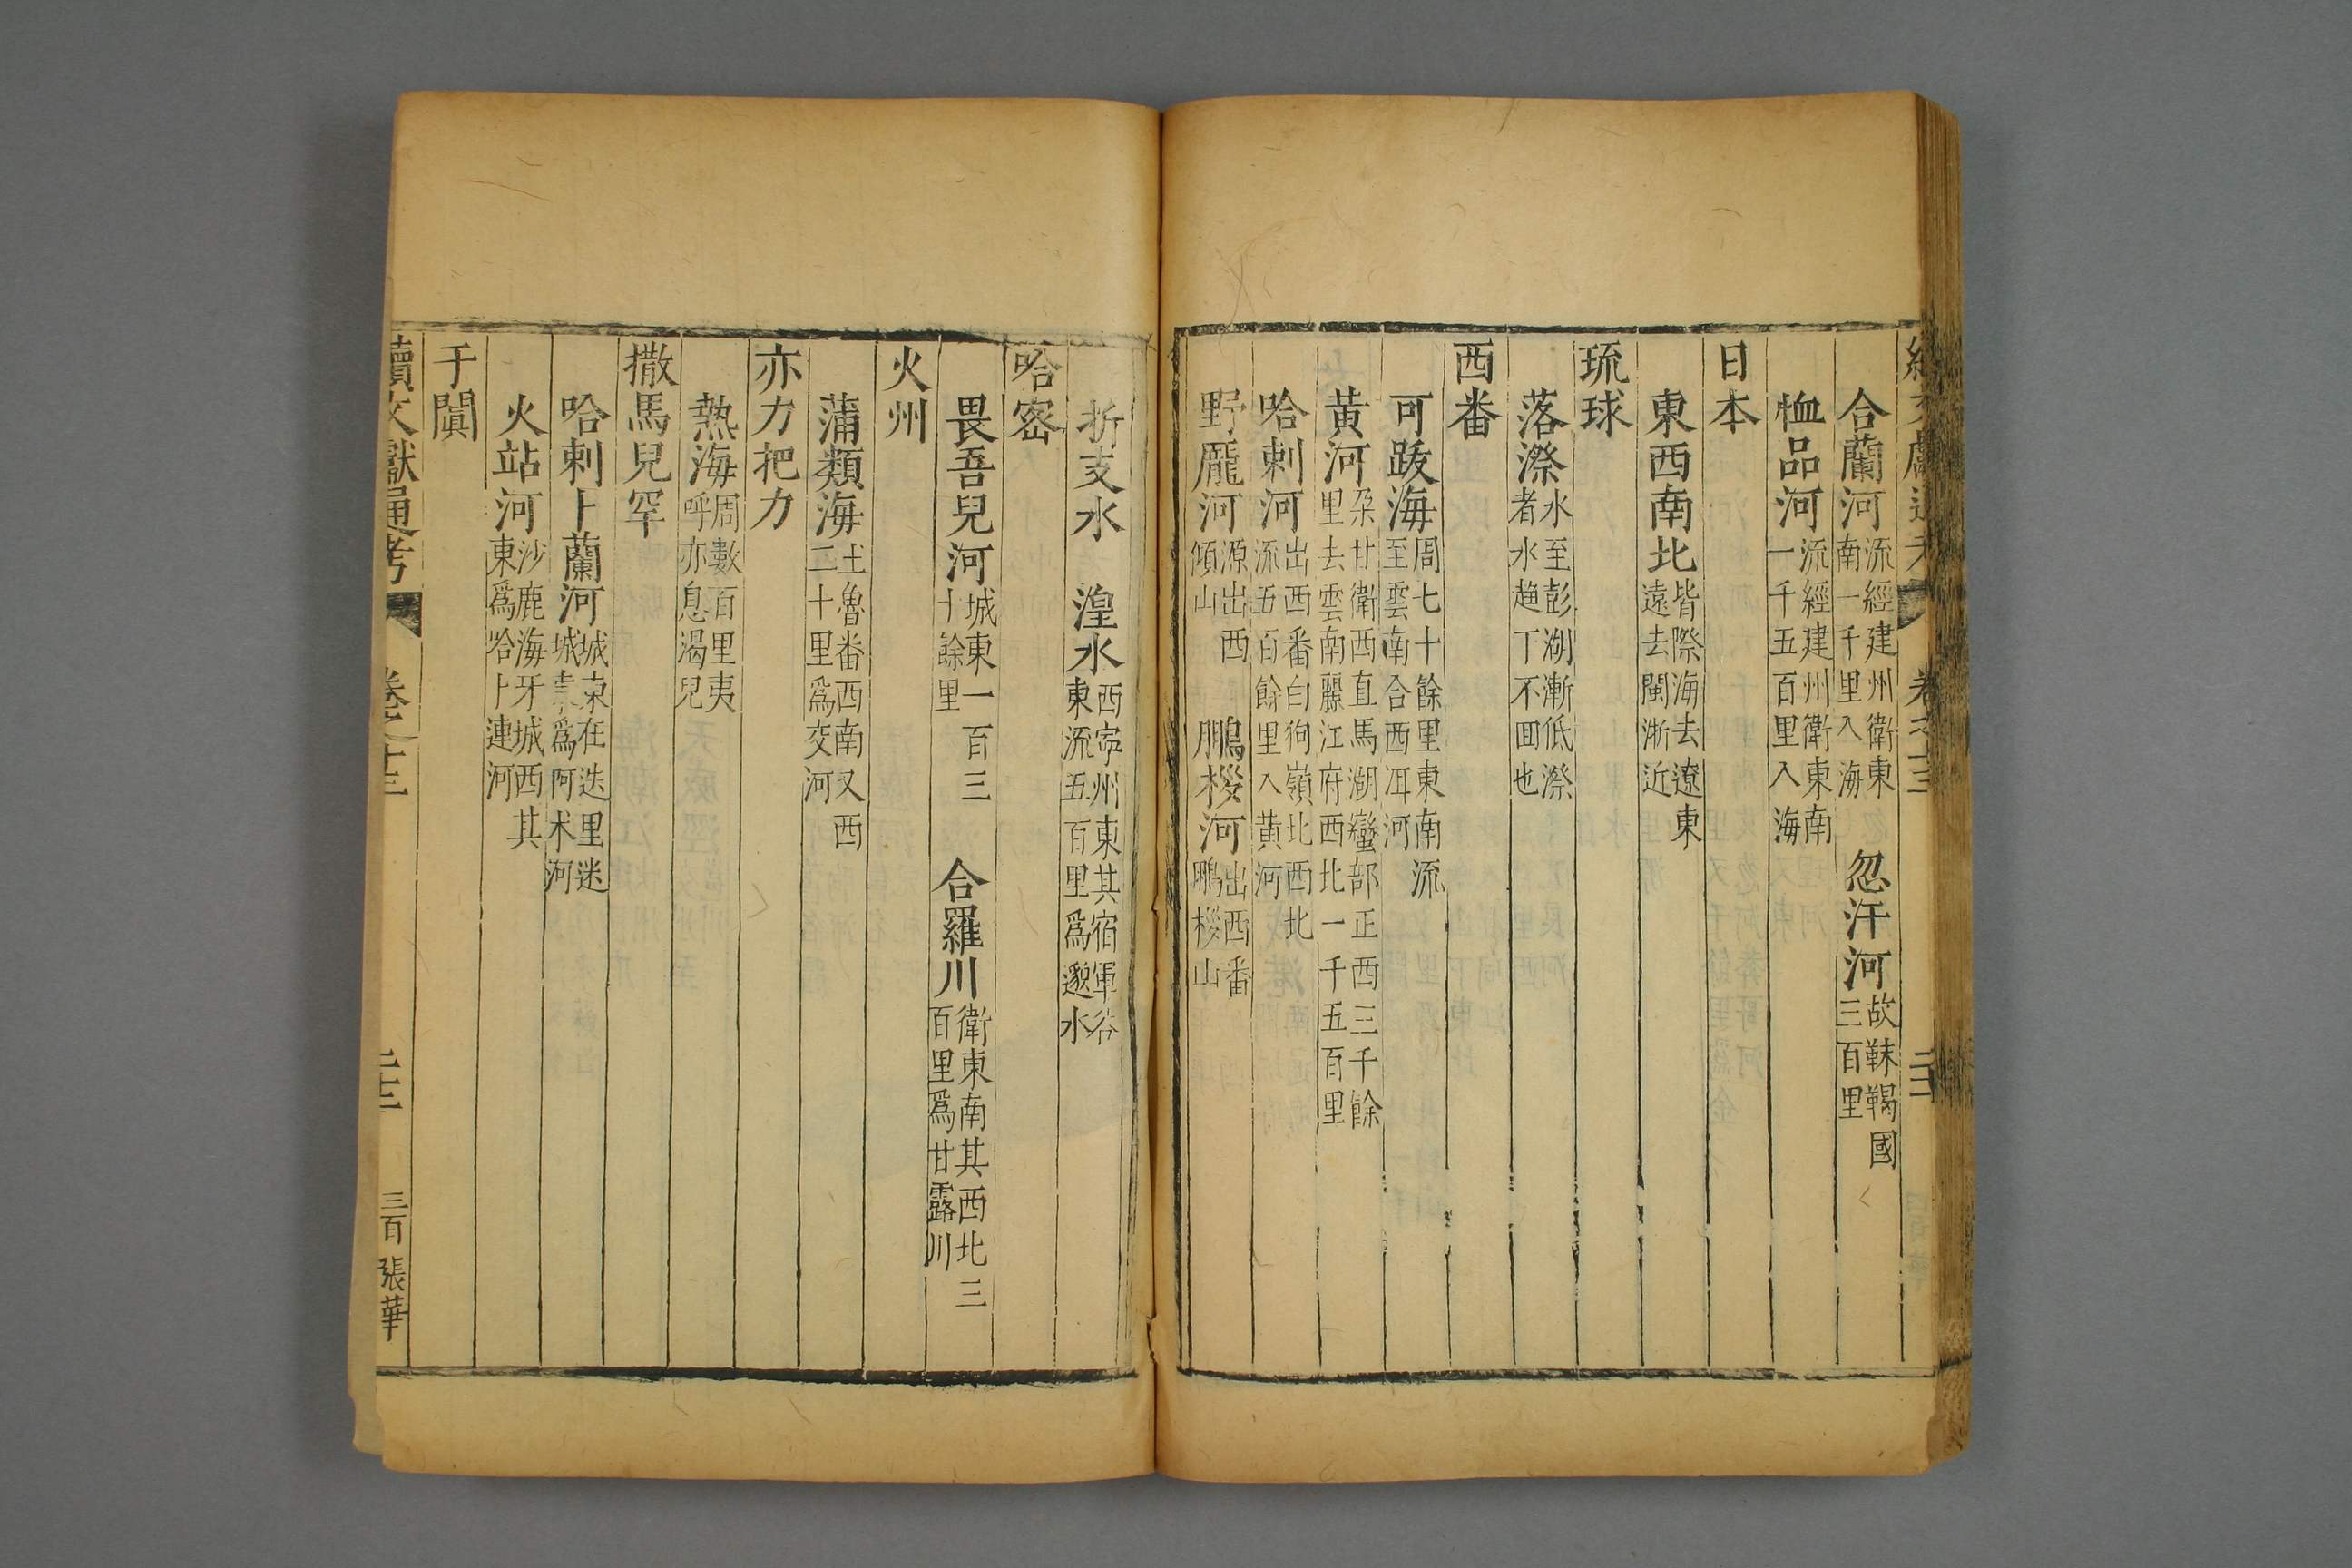 續文獻通考 卷之十三 二十二
合蘭河流經建州衛東南一千里入海 忽汗河故靺鞨國三百里
恤品河流經建州衛東南一千五百里入海
日本
東西南北皆際海去遼東遠去閩浙近
琉球
落漈水至彭湖漸低漈者水趨下不回也
西番
可跋海周七十餘里東南流至雲南合西洱河
黄河朶甘衛西直馬湖蠻部正西三千餘里去雲南麗江府西北一千五百里
哈剌河出西番白狗嶺北西北流五百餘里入黄河
野龎河源出西傾山 鵬桵河出西番鵬桵山
折支水 湟水西寧州東其宿軍谷東流五百里爲邈水
哈密
畏吾兒河城東一百三十餘里 合羅川衛東南其西北三百里爲甘露川
火州
蒲類海土魯番西南又西二十里爲交河
亦力把力
熱海周數百里夷呼亦息渴兒
撒馬兒罕
哈剌卜蘭河城東在迭里迷城 爲阿术河
火站河沙鹿海牙城西其東爲哈卜連河
于闐
續文獻通考 卷之十三 二十三 三百 張華